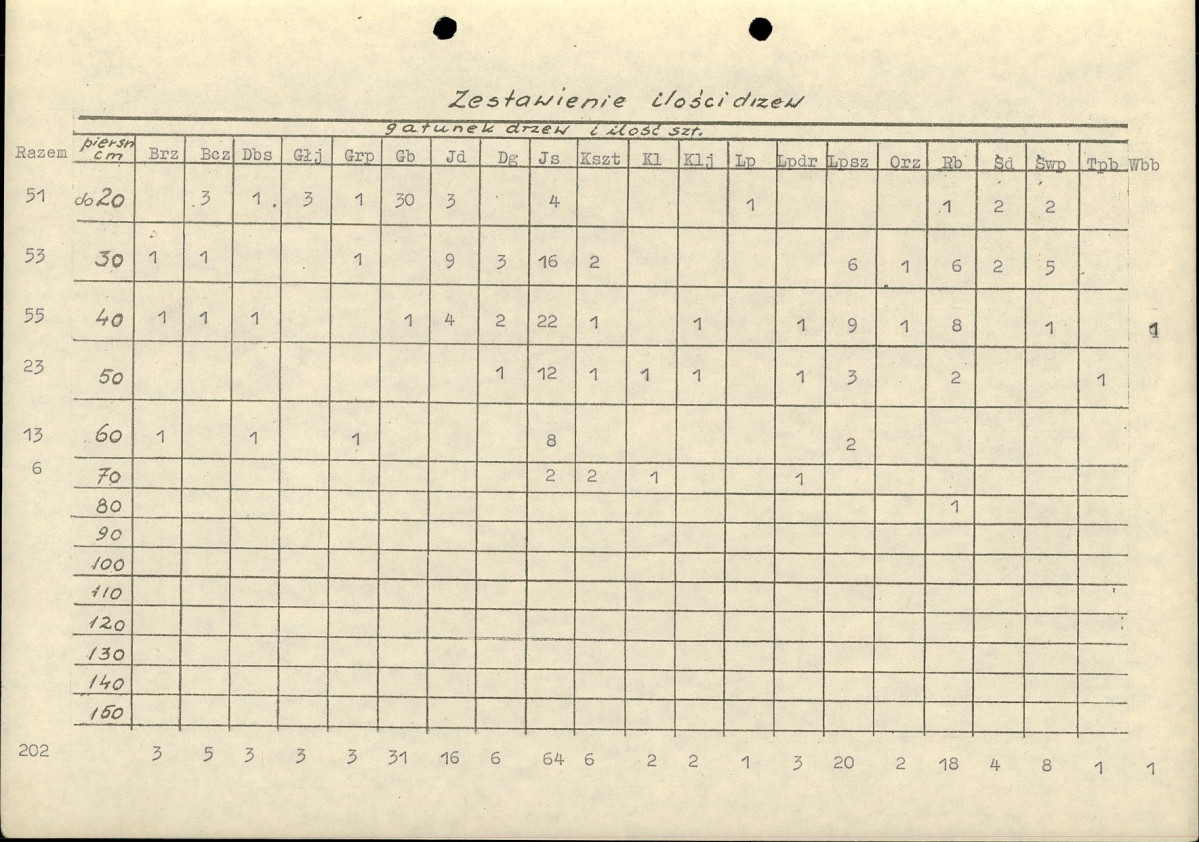 Zestawienie ilości drzew
gatunek drzew i ilość szt.
Razem piersn cm Brz Bcz Dbs Głj Grp Gb Jd Dg Js Kszt Kl Klj Lp Lpdr Lpsz Orz Rb Śd Śwp Tpb Wbb
51 do 20 3 1 3 1 30 3 4 1 1 2 2
53 30 1 1 1 9 3 16 2 6 1 6 2 5
55 40 1 1 1 1 4 2 22 1 1 1 9 1 8 1 1
23 50 1 12 1 1 1 1 3 2 1
13 60 1 1 1 8 2
6 70 2 2 1 1
80 1
90
100
110
120
130
140
150
202 3 5 3 3 3 31 16 6 64 6 2 2 1 3 20 2 18 4 8 1 1